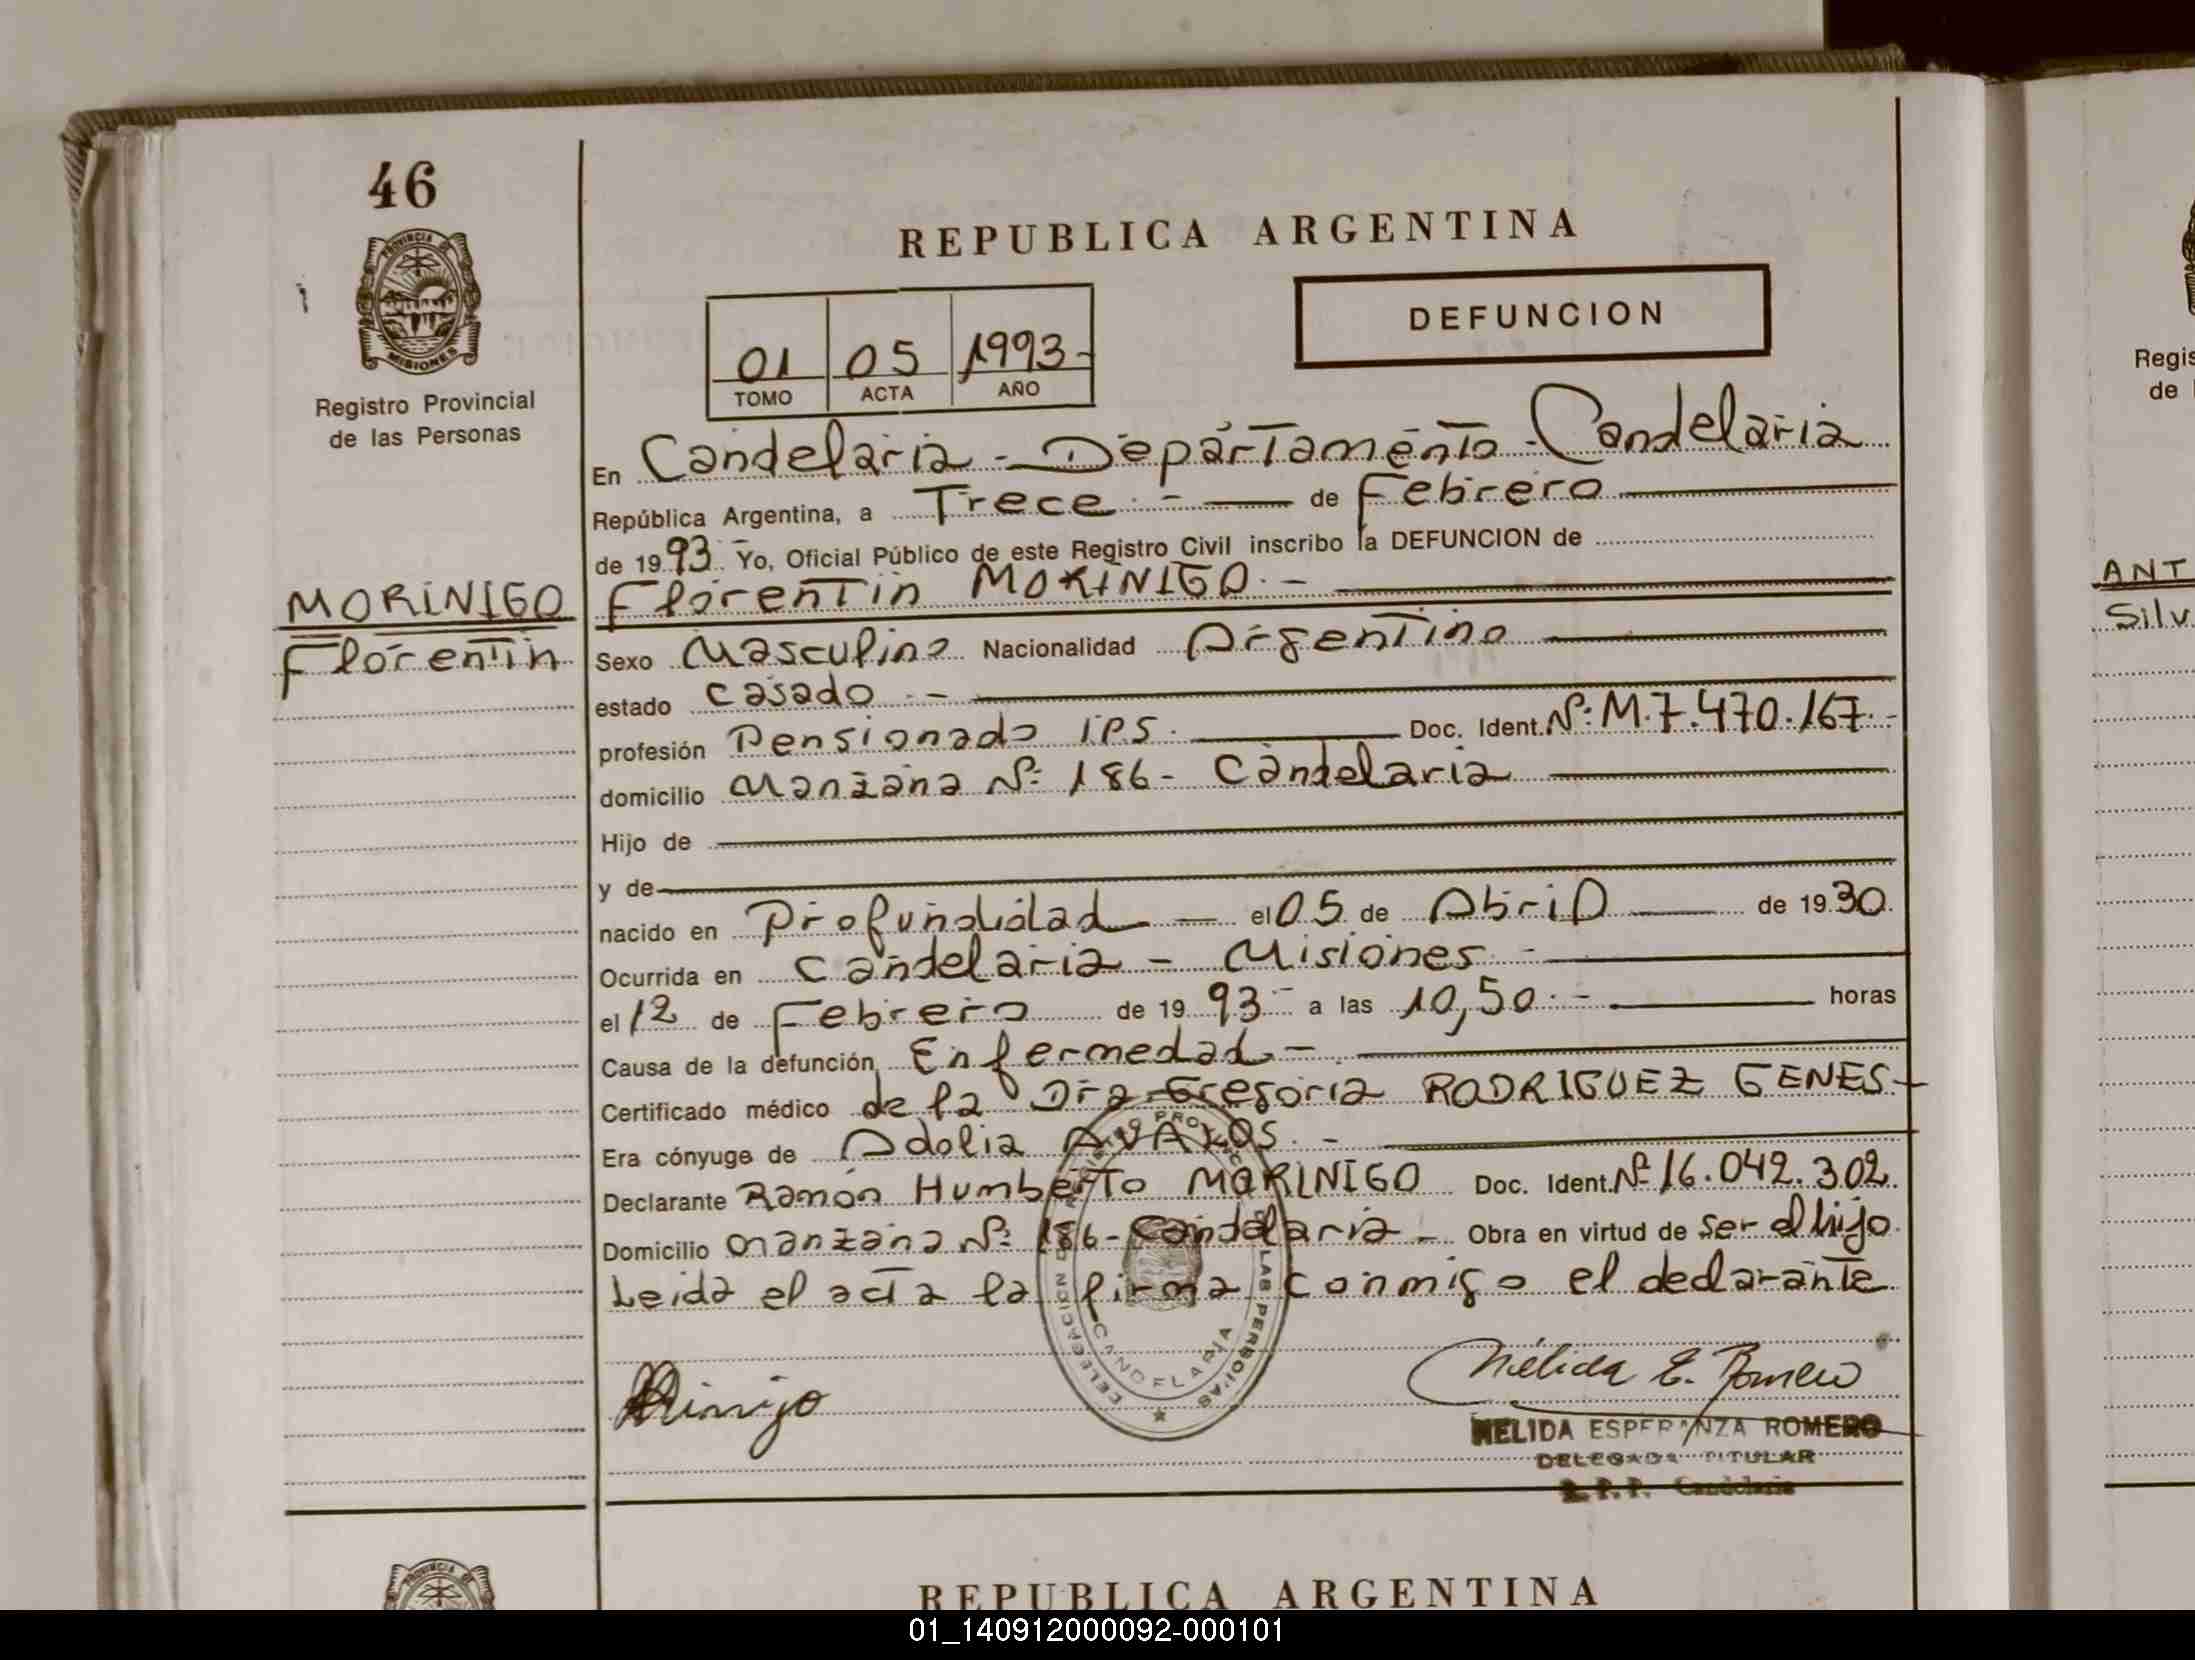 46
PROVINCIA DE
MISIONES
Registro Provincial
de las Personas
MORINIGO
Florentin
REPUBLICA ARGENTINA
DEFUNCION
01 05 1993-
TOMO ACTA AÑO
En Candelaria - Departamento - Candelaria
República Argentina, a Trece - de Febrero
de 1993 Yo, Oficial Público de este Registro Civil inscribo la DEFUNCION de
Florentin MORINIGO. -
Sexo Masculino Nacionalidad Argentino
estado casado -
profesión Pensionado IPS. Doc. Ident. Nº: M.7.470.167.-
domicilio Manzana Nº 186 - Candelaria
Hijo de
y de
nacido en Profundidad - el 05 de Abril de 1930.
Ocurrida en Candelaria - Misiones -
el 12 de Febrero de 1993 - a las 10,50. - horas
Causa de la defunción Enfermedad. -
Certificado médico de la Dra Gregoria RODRIGUEZ GENES -
Era cónyuge de Adolia AVALOS. -
Declarante Ramón Humberto MORINIGO Doc. Ident. Nº 16.042.302
Domicilio manzana Nº 186 - Candelaria - Obra en virtud de ser el hijo
Leida el acta la firma conmigo el declarante
DELEGACION
LAS PERSONAS
CANDELARIA
Nélida E. Romero
NELIDA ESPERANZA ROMERO
DELEGADA TITULAR
R. P. P. Candelaria
REPUBLICA ARGENTINA
PROVINCIA DE
Regis
de l
ANT
Silv
01_140912000092-000101